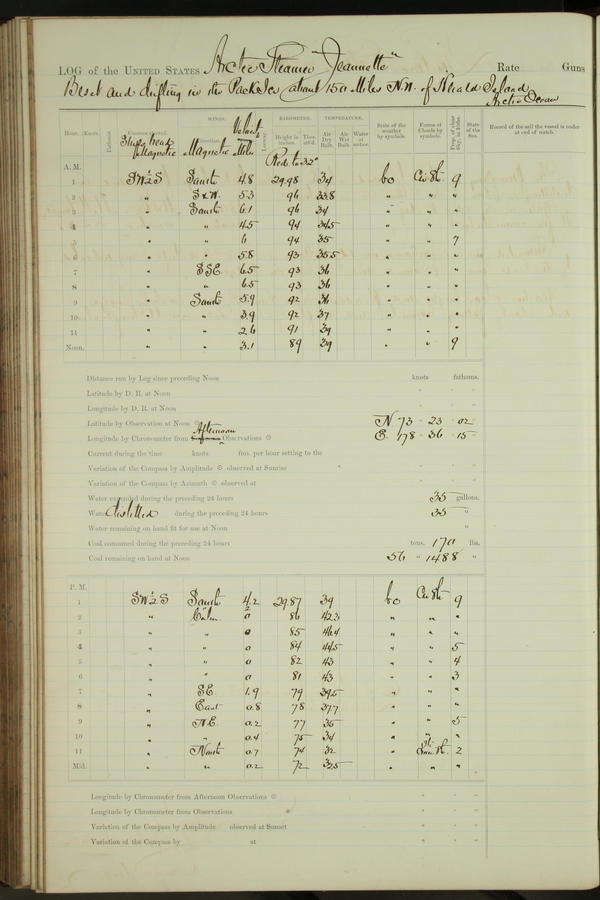 LOG of the UNITED STATES Arctic Steamer "Jeannette" Rate Guns
Beset and drifting in the Pack Ice (about 150 Miles N.W. of Herald Island,
Arctic Ocean
Hour. Knots. Fathoms. Courses steered. WINDS. Leeway BAROMETER. TEMPERATURE. State of the weather by symbols. Forms of Clouds by symbols. Prop. of clear Sky, in 10ths. State of the Sea. Record of the sail the vessel is under at end of watch.
Ship's head Magnetic Direction Magnetic Velocity Miles Height in inches. Ther. att'd. Air Dry Bulb. Air Wet Bulb. Water at surface.
A.M. Red. to 32°
1 SW½S South 4.8 29.98 34 bc Ci St. 9
2 " S x W. 5.3 96 33.8 " " "
3 " South 6.1 96 34 " " "
4 " " 4.5 94 34.5 " " "
5 " " 6 94 35 " " 7
6 " " 5.8 93 35.5 " " "
7 " SSE 6.5 93 36 " " "
8 " " 6.5 93 36 " " "
9 " South 5.9 92 36 " " "
10 " " 3.9 92 37 " " "
11 " " 2.6 91 39 " " "
Noon. " " 3.1 89 39 " " 9
Distance run by Log since preceding Noon knots fathoms.
Latitude by D. R. at Noon
Longitude by D. R. at Noon
Latitude by Observation at Noon N 73 - 23 - 02
Longitude by Chronometer from Afternoon Observations E. 178 - 36 - 15
Current during the time knots fms. per hour setting to the
Variation of the Compass by Amplitude observed at Sunrise
Variation of the Compass by Azimuth observed at
Water expended during the preceding 24 hours 35 gallons.
Water distilled during the preceding 24 hours 35 "
Water remaining on hand fit for use at Noon "
Coal consumed during the preceding 24 hours tons. 170 lbs.
Coal remaining on hand at Noon 56 " 1488 "
P.M.
1 SW½S South 4.2 29.87 39 bc Cu St. 9
2 " Calm 0 86 42.3 " " "
3 " " 0 85 46.4 " " "
4 " " 0 84 44.5 " " 5
5 " " 0 82 43 " " 4
6 " " 0 81 43 " " 3
7 " SE. 1.9 79 39.5 " " "
8 " East 0.8 78 37.7 " " "
9 " N.E. 0.2 77 35 " " 5
10 " " 0.4 75 34 " " "
11 " North 0.7 74 32 " St. 2
Mid. " " 0.2 72 32.5 " " "
Longitude by Chronometer from Afternoon Observations
Longitude by Chronometer from Observations
Variation of the Compass by Amplitude observed at Sunset
Variation of the Compass by at